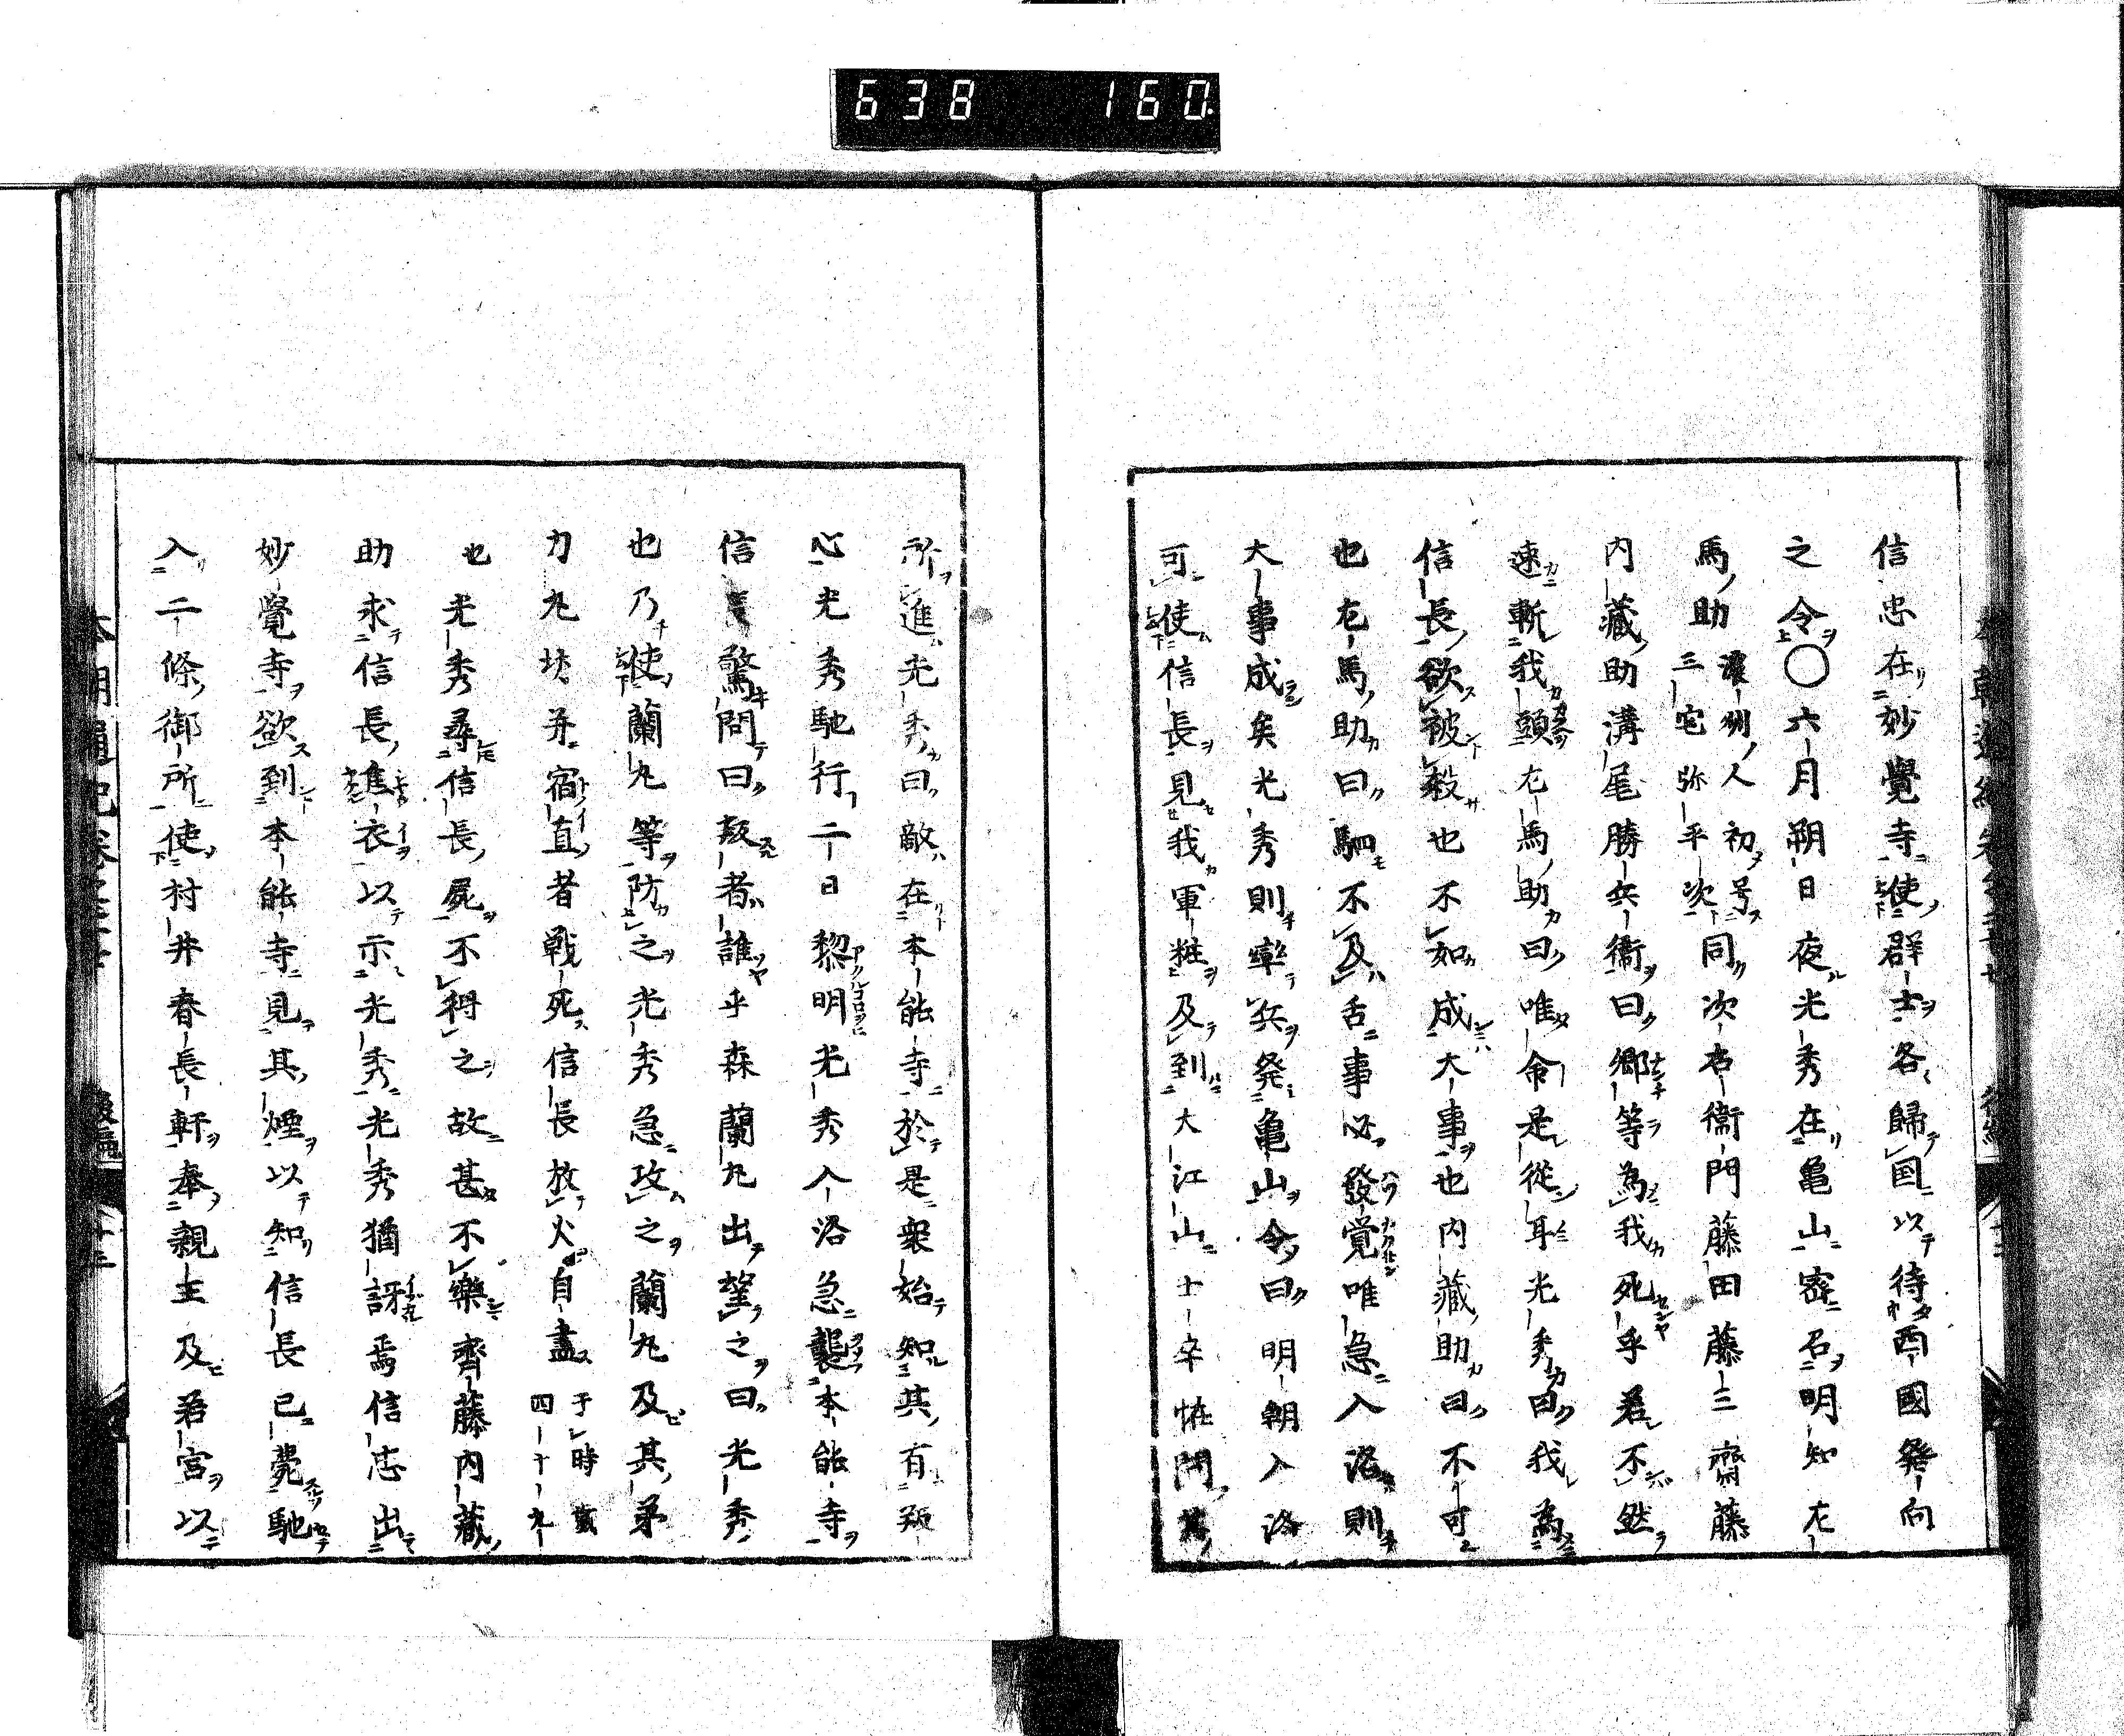 638 160
信忠在妙覺寺使群士各歸国以待酉國発向
之令〇六月朔日夜光秀在亀山密召明知左
馬助濃州人初号三宅弥平次同次右衞門藤田藤三齋藤
内藏助溝尾勝兵衞曰郷等為我死乎君不然
速斬我頭左馬助曰唯命是從耳光秀曰我為
信長欲被殺也不如成大事也内藏助曰不可
也左馬助曰駟不及舌事必發覚唯急入洛則
大事成矣光秀則率兵発亀山令曰明朝入洛
可使信長見我軍粧及到大江山士卒恠問
所進光秀曰敵在本能寺於是衆始知其有叛
心光秀馳行二日黎明光秀入洛急襲本能寺
信長驚問曰叛者誰乎森蘭丸出望之曰光秀
也乃使蘭丸等防之光秀急攻之蘭丸及其弟
力丸坊丸并宿直者戦死信長放火自盡于時歳四十九
也光秀尋信長屍不得之故甚不樂齊藤内藏
助求信長燋衣以示光秀光秀猶訝焉信忠出
妙覺寺欲到本能寺見其煙以知信長已薨馳
入二條御所使村井春長軒奉親王及若宮以
本朝通紀卷 後編 十三